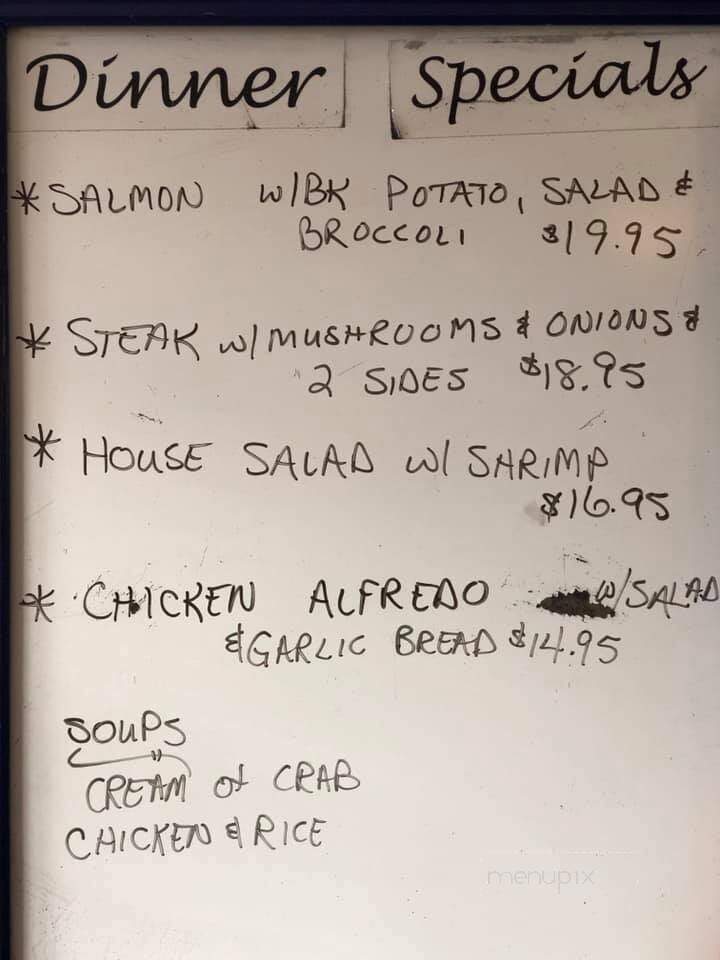 Dinner Specials
* SALMON w/BK POTATO, SALAD &
BROCCOLI $19.95
* STEAK w/MUSHROOMS & ONIONS &
2 SIDES $18.95
* HOUSE SALAD w/ SHRIMP
$16.95
* CHICKEN ALFREDO w/SALAD
& GARLIC BREAD $14.95
SOUPS
CREAM of CRAB
CHICKEN & RICE
menupix